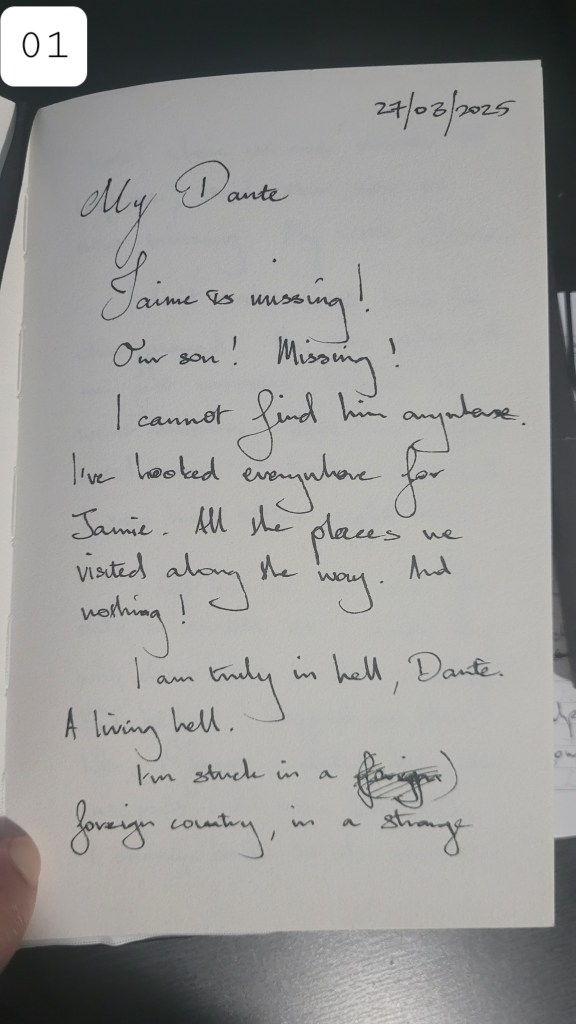 01
27/03/2025
My Dante
Jaime is missing!
Our son! Missing!
I cannot find him anywhere.
I've looked everywhere for
Jamie. All the places we
visited along the way. And
nothing!
I am truly in hell, Dante.
A living hell.
I'm stuck in a (foreign)
foreign country, in a strange